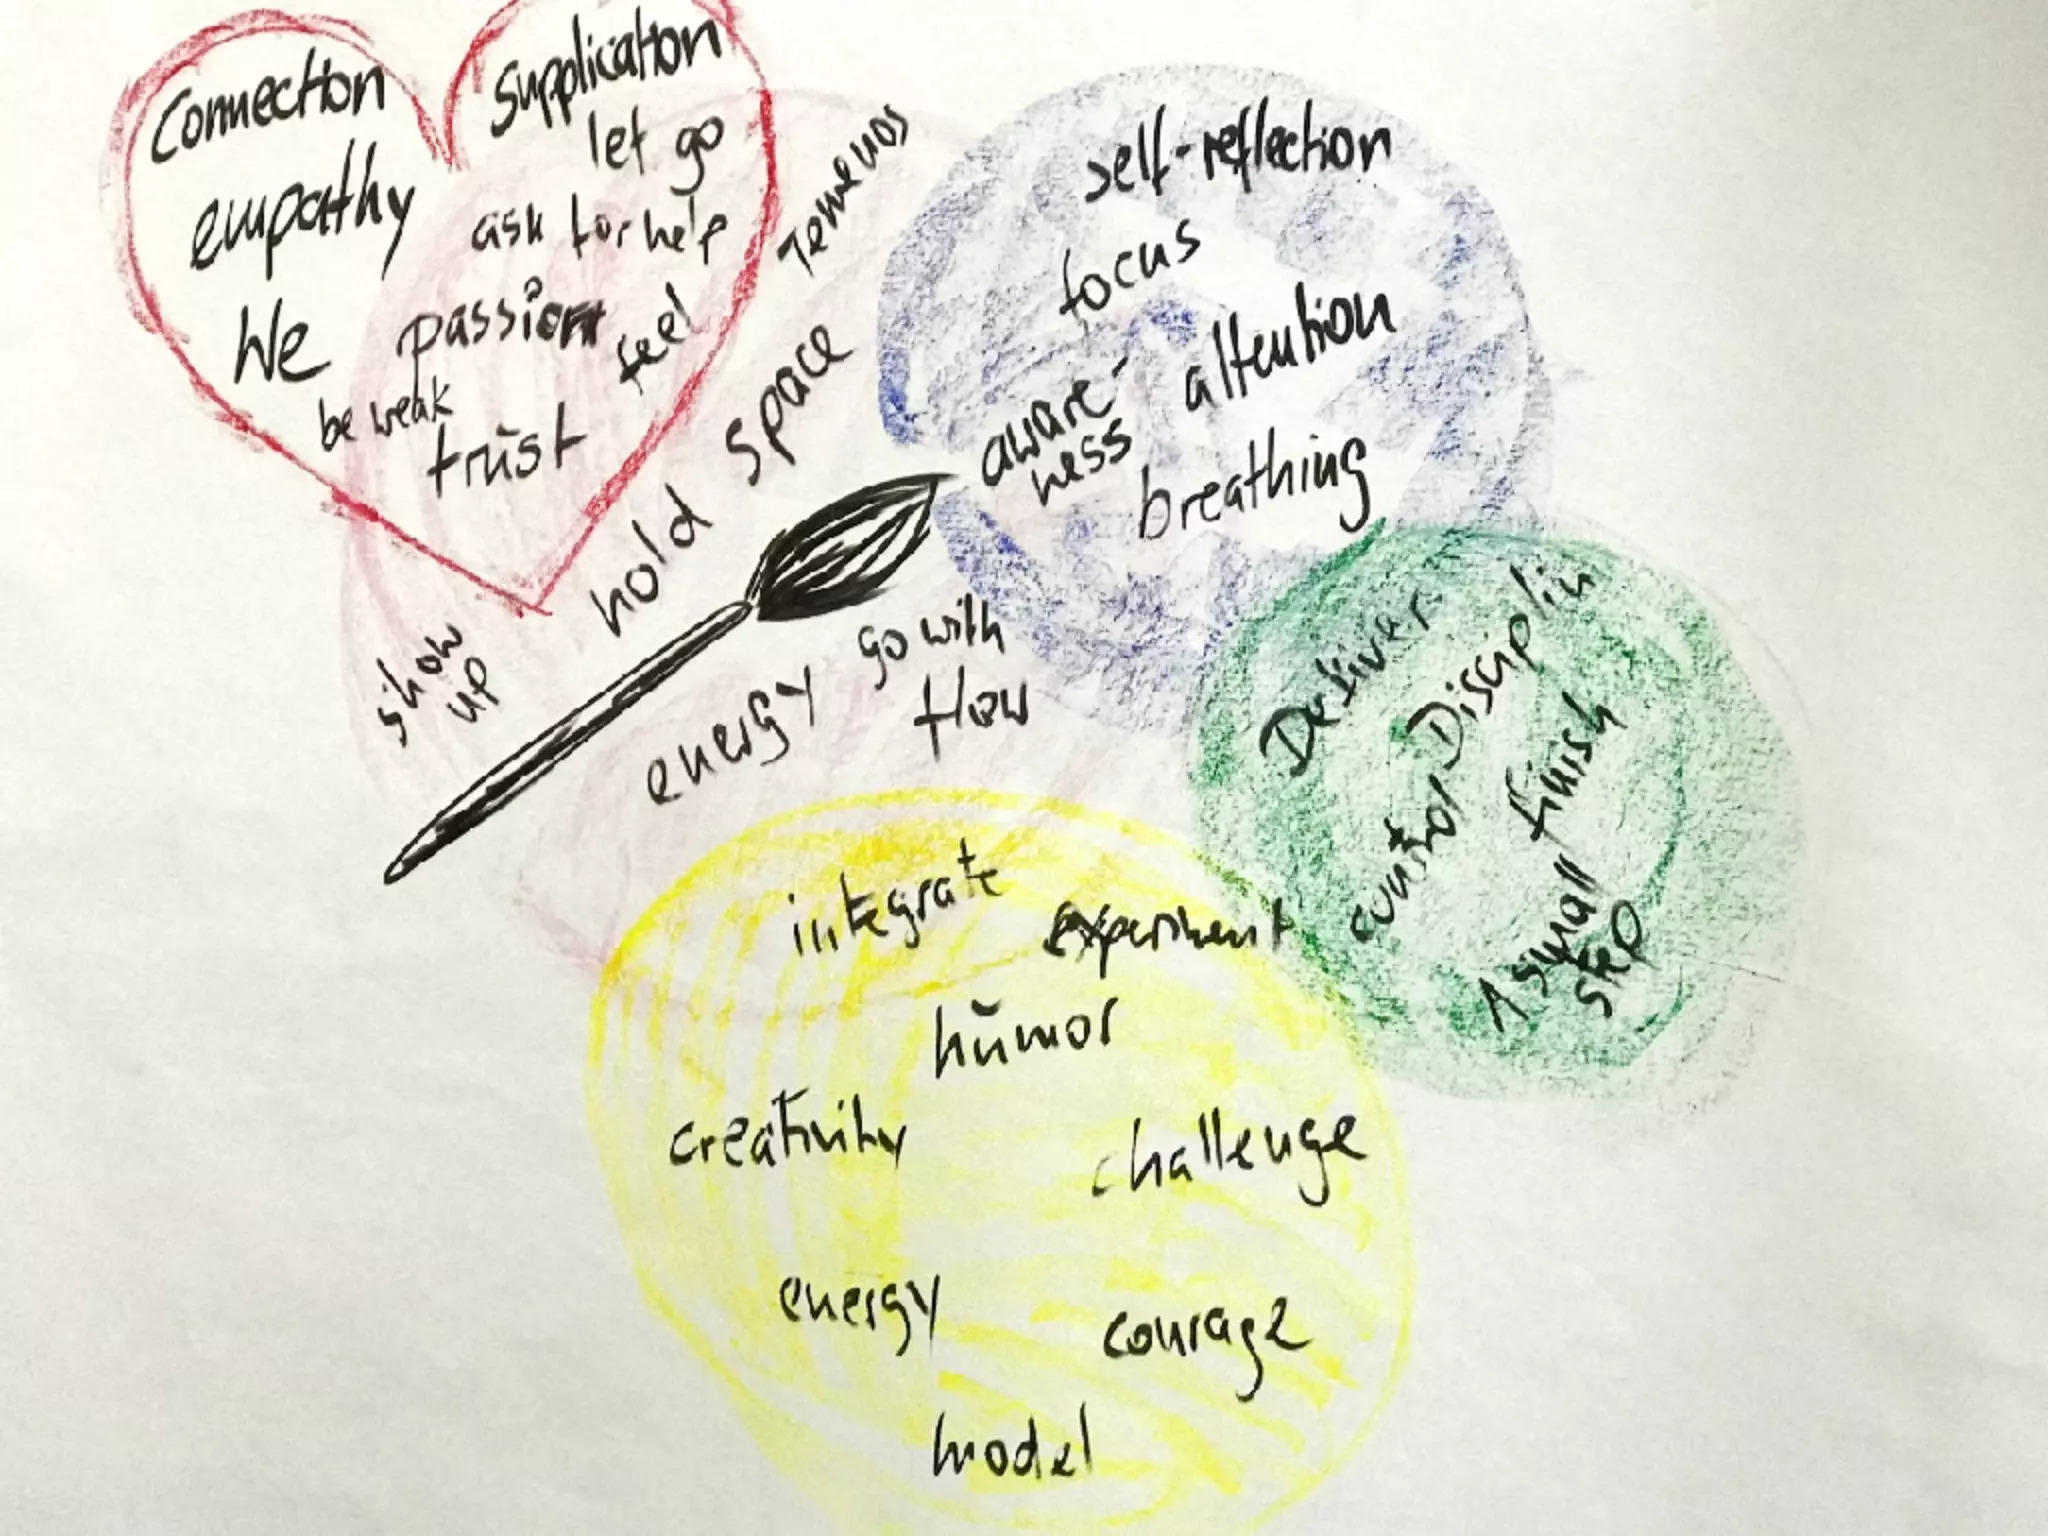 Connection
empathy
We
be weak
Supplication
let go
ask for help
passion
feel
trust
Temenos
hold space
show
up
energy
go with
flow
self-reflection
focus
aware-
ness
attention
breathing
Deliver
Disciplin
control
finish
A small
step
integrate
experiment
humor
creativity
challenge
energy
courage
model